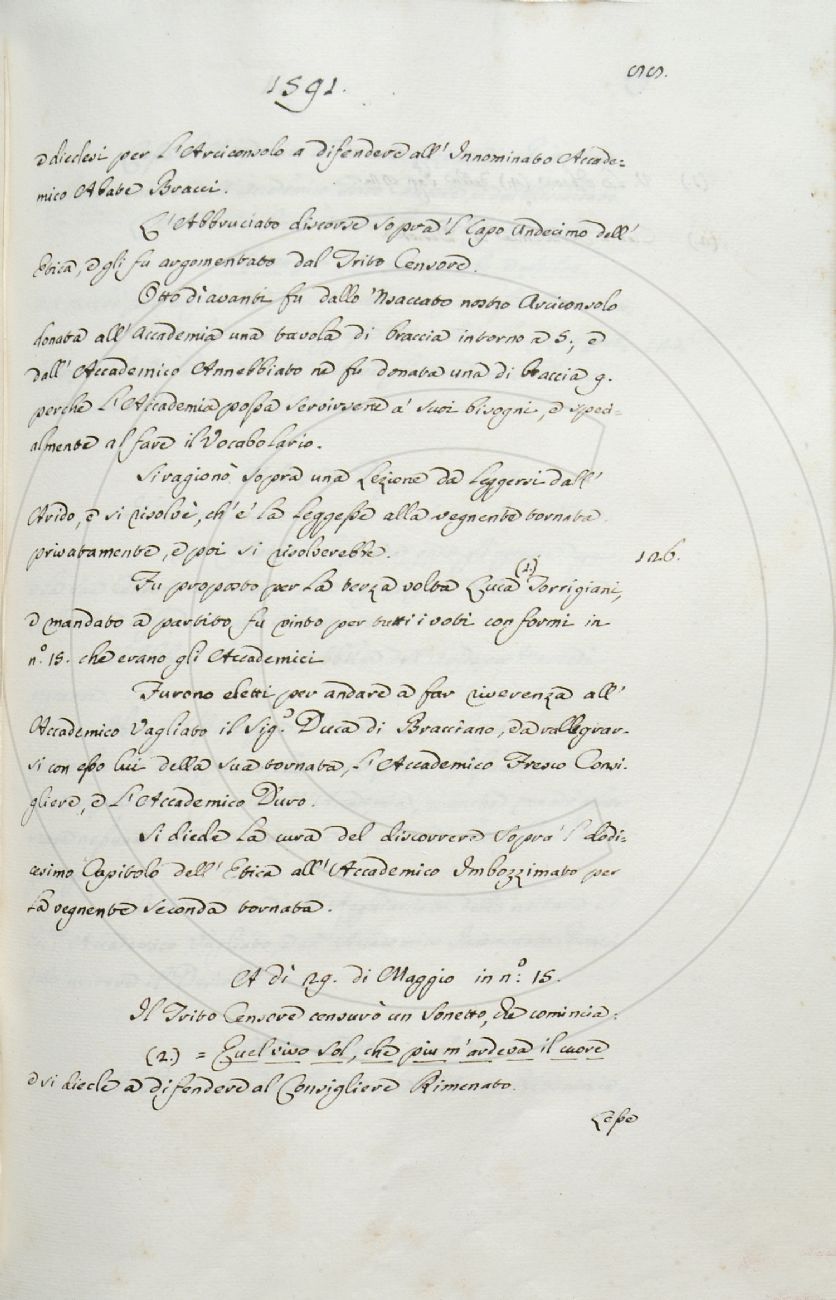 1591.
55.
e diedesi per l'Arciconsolo a difendere all'Innominato Accade=
mico Abate Bracci.
L'Abbruciato discorse sopra 'l Capo Undecimo dell'
Etica, e gli fu argomentato dal Trito Censore.
Otto dì avanti fu dallo 'Nsaccato nostro Arciconsolo
donata all'Accademia una tavola di braccia intorno a 5; e
dall'Accademico Annebbiato ne fu donata una di braccia 9.
perchè l'Accademia possa servirsene a' suoi bisogni, e speci=
almente al fare il Vocabolario.
Si ragionò sopra una Lezione da leggersi dall'
Arido, e si risolvè, ch'e' la leggesse alla vegnente tornata
privatamente, e poi si risolverebbe.
126.
Fu proposto per la terza volta Luca (1.) Torrigiani,
e mandato a partito fu vinto per tutti i voti conformi in
n.º 15. che erano gli Accademici
Furono eletti per andare a far riverenza all'
Accademico Vagliato il Sig.º Duca di Bracciano, e a rallegrar-
si con esso lui della sua tornata, l'Accademico Fresco Consi-
gliere, e l'Accademico Duro.
Si diede la cura del discorrere sopra 'l dodi=
cesimo Capitolo dell'Etica all'Accademico Imbozzimato per
la vegnente seconda tornata.
A dì 29. di Maggio in n.º 15.
Il Trito Censore censurò un Sonetto, che comincia:
(2.) = Quel vivo Sol, che più m'ardeva il cuore
e si diede a difendere al Consigliere Rimenato.
Lesse